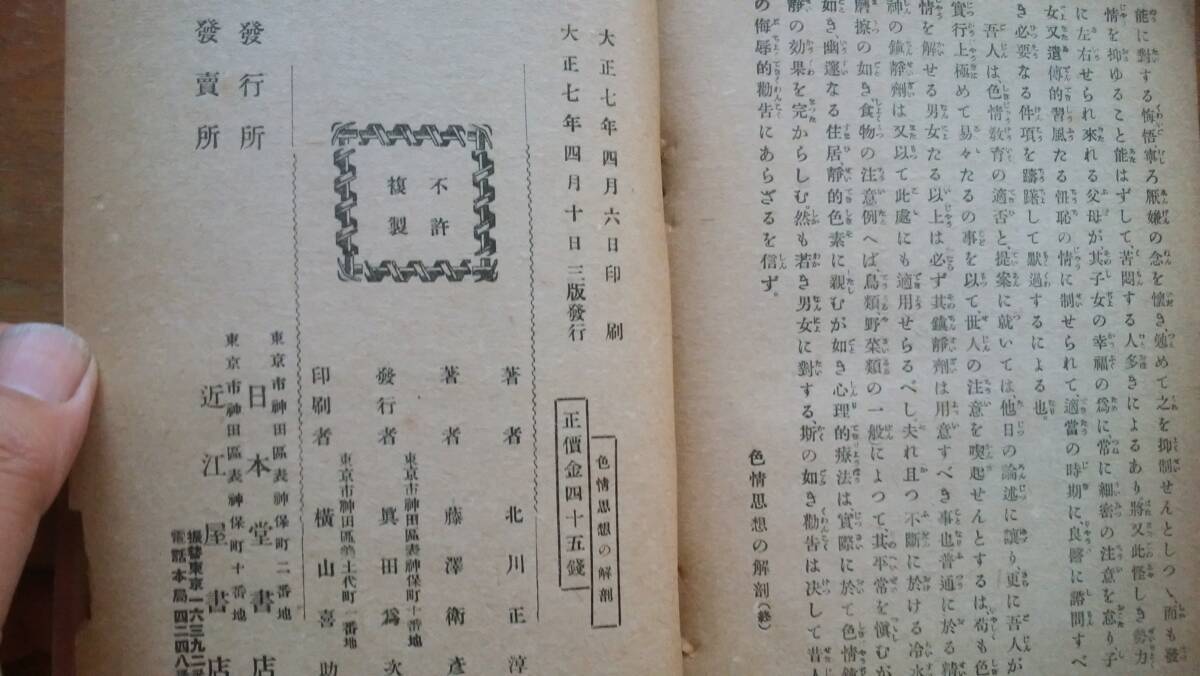 能に對する悔悟寧ろ厭嫌の念を懷き、勉めて之を抑制せんとしつゝ、而も發
情を抑ゆること能はずして、苦悶する人多きによるあり、將又此怪しき勢力
に左右せられ來れる父母が、其子女の幸福の爲に常に細密の注意を怠り、子
女又遺傳的習風たる忸恥の情に制せられて適當の時期に良醫に諮問すべ
き必要なる件項を躊躇して默過するによる也。
吾人は、色情敎育の適否と、提案に就いては、他日の論述に讓り更に吾人が
實行上極めて易々たるの事を以て世人の注意を喚起せんとするは、苟も色
情を解せる男女たる以上は必ず其鎮靜劑は用意すべき事也普通に於る精
神の鎮靜劑は又以て此處にも適用せらるべし、夫れ且つ不斷に於ける冷水
摩擦の如き、食物の注意例へば、鳥類、野菜類の一般)によつて、其平常を愼むが
如き、幽邃なる住居、靜的色素に親むが如き心理的療法は、實際に於て色情鎮
靜の効果を完からしむ。然も若き男女に對する、斯の如き勸告は决して昔人
の侮辱的勸告にあらざるを信ず。
色情思想の解剖(終)
大正七年四月六日印刷
大正七年四月十日三版發行
色情思想の解剖
正價金四十五錢
不許
複製
著者 北川正淳
著者 藤澤衛彦
東京市神田區表神保町十番地
發行者 眞田爲次
東京市神田區美土代町一番地
印刷者 橫山喜助
東京市神田區表神保町二番地
發行所 日本堂書店
東京市神田區表神保町十番地
發賣所 近江屋書店
振替東京一六三九二
電話本局四二四八